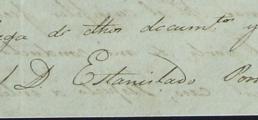 ega de dhos docum.tos y
D. Estanislado Pom